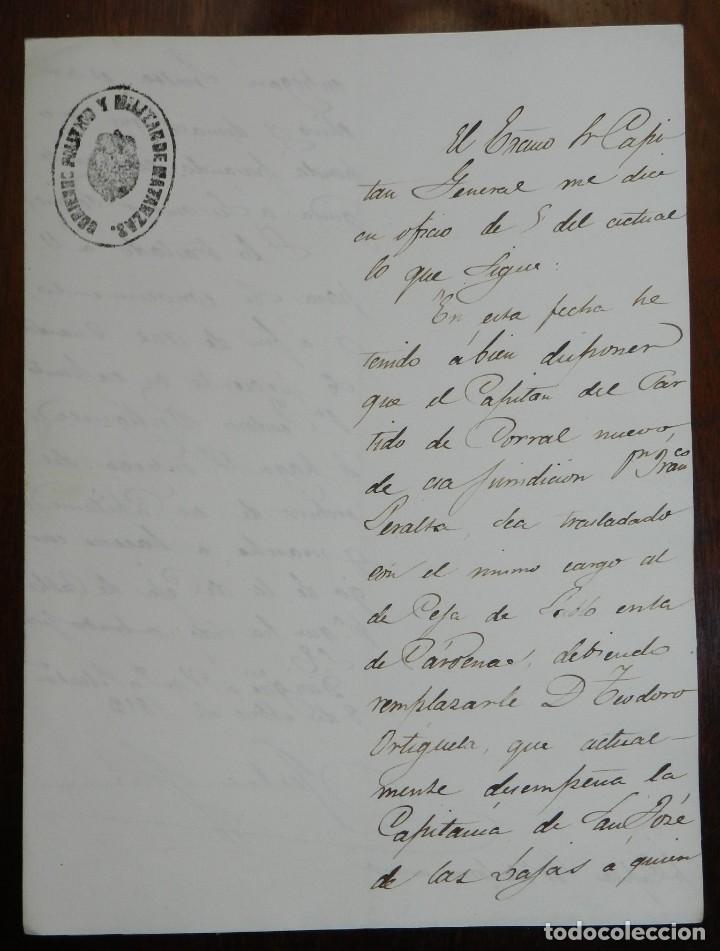 GOBIERNO POLITICO Y MILITAR DE MATANZAS.
El Escmo Sr Capi
tan General me dice
en oficio de 5 del actual
lo que sigue:
En esta fecha he
tenido á bien disponer
que el Capitan del Par
tido de Corral nuevo
de esa jurisdicion Dn Franco
Peralta, sea trasladado
con el mismo cargo al
de Ceja de Pablo en la
de Cárdenas, debiendo
remplazarle D Teodoro
Ortigueta, que actual-
mente desempeña la
Capitanía de San José
de las Lajas á quien
todocoleccion
todocoleccion.net